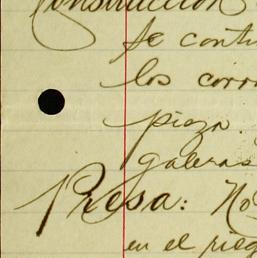 Construcción
Se contin
los corra
pieza.
galeras
Presa: No
en el rieg